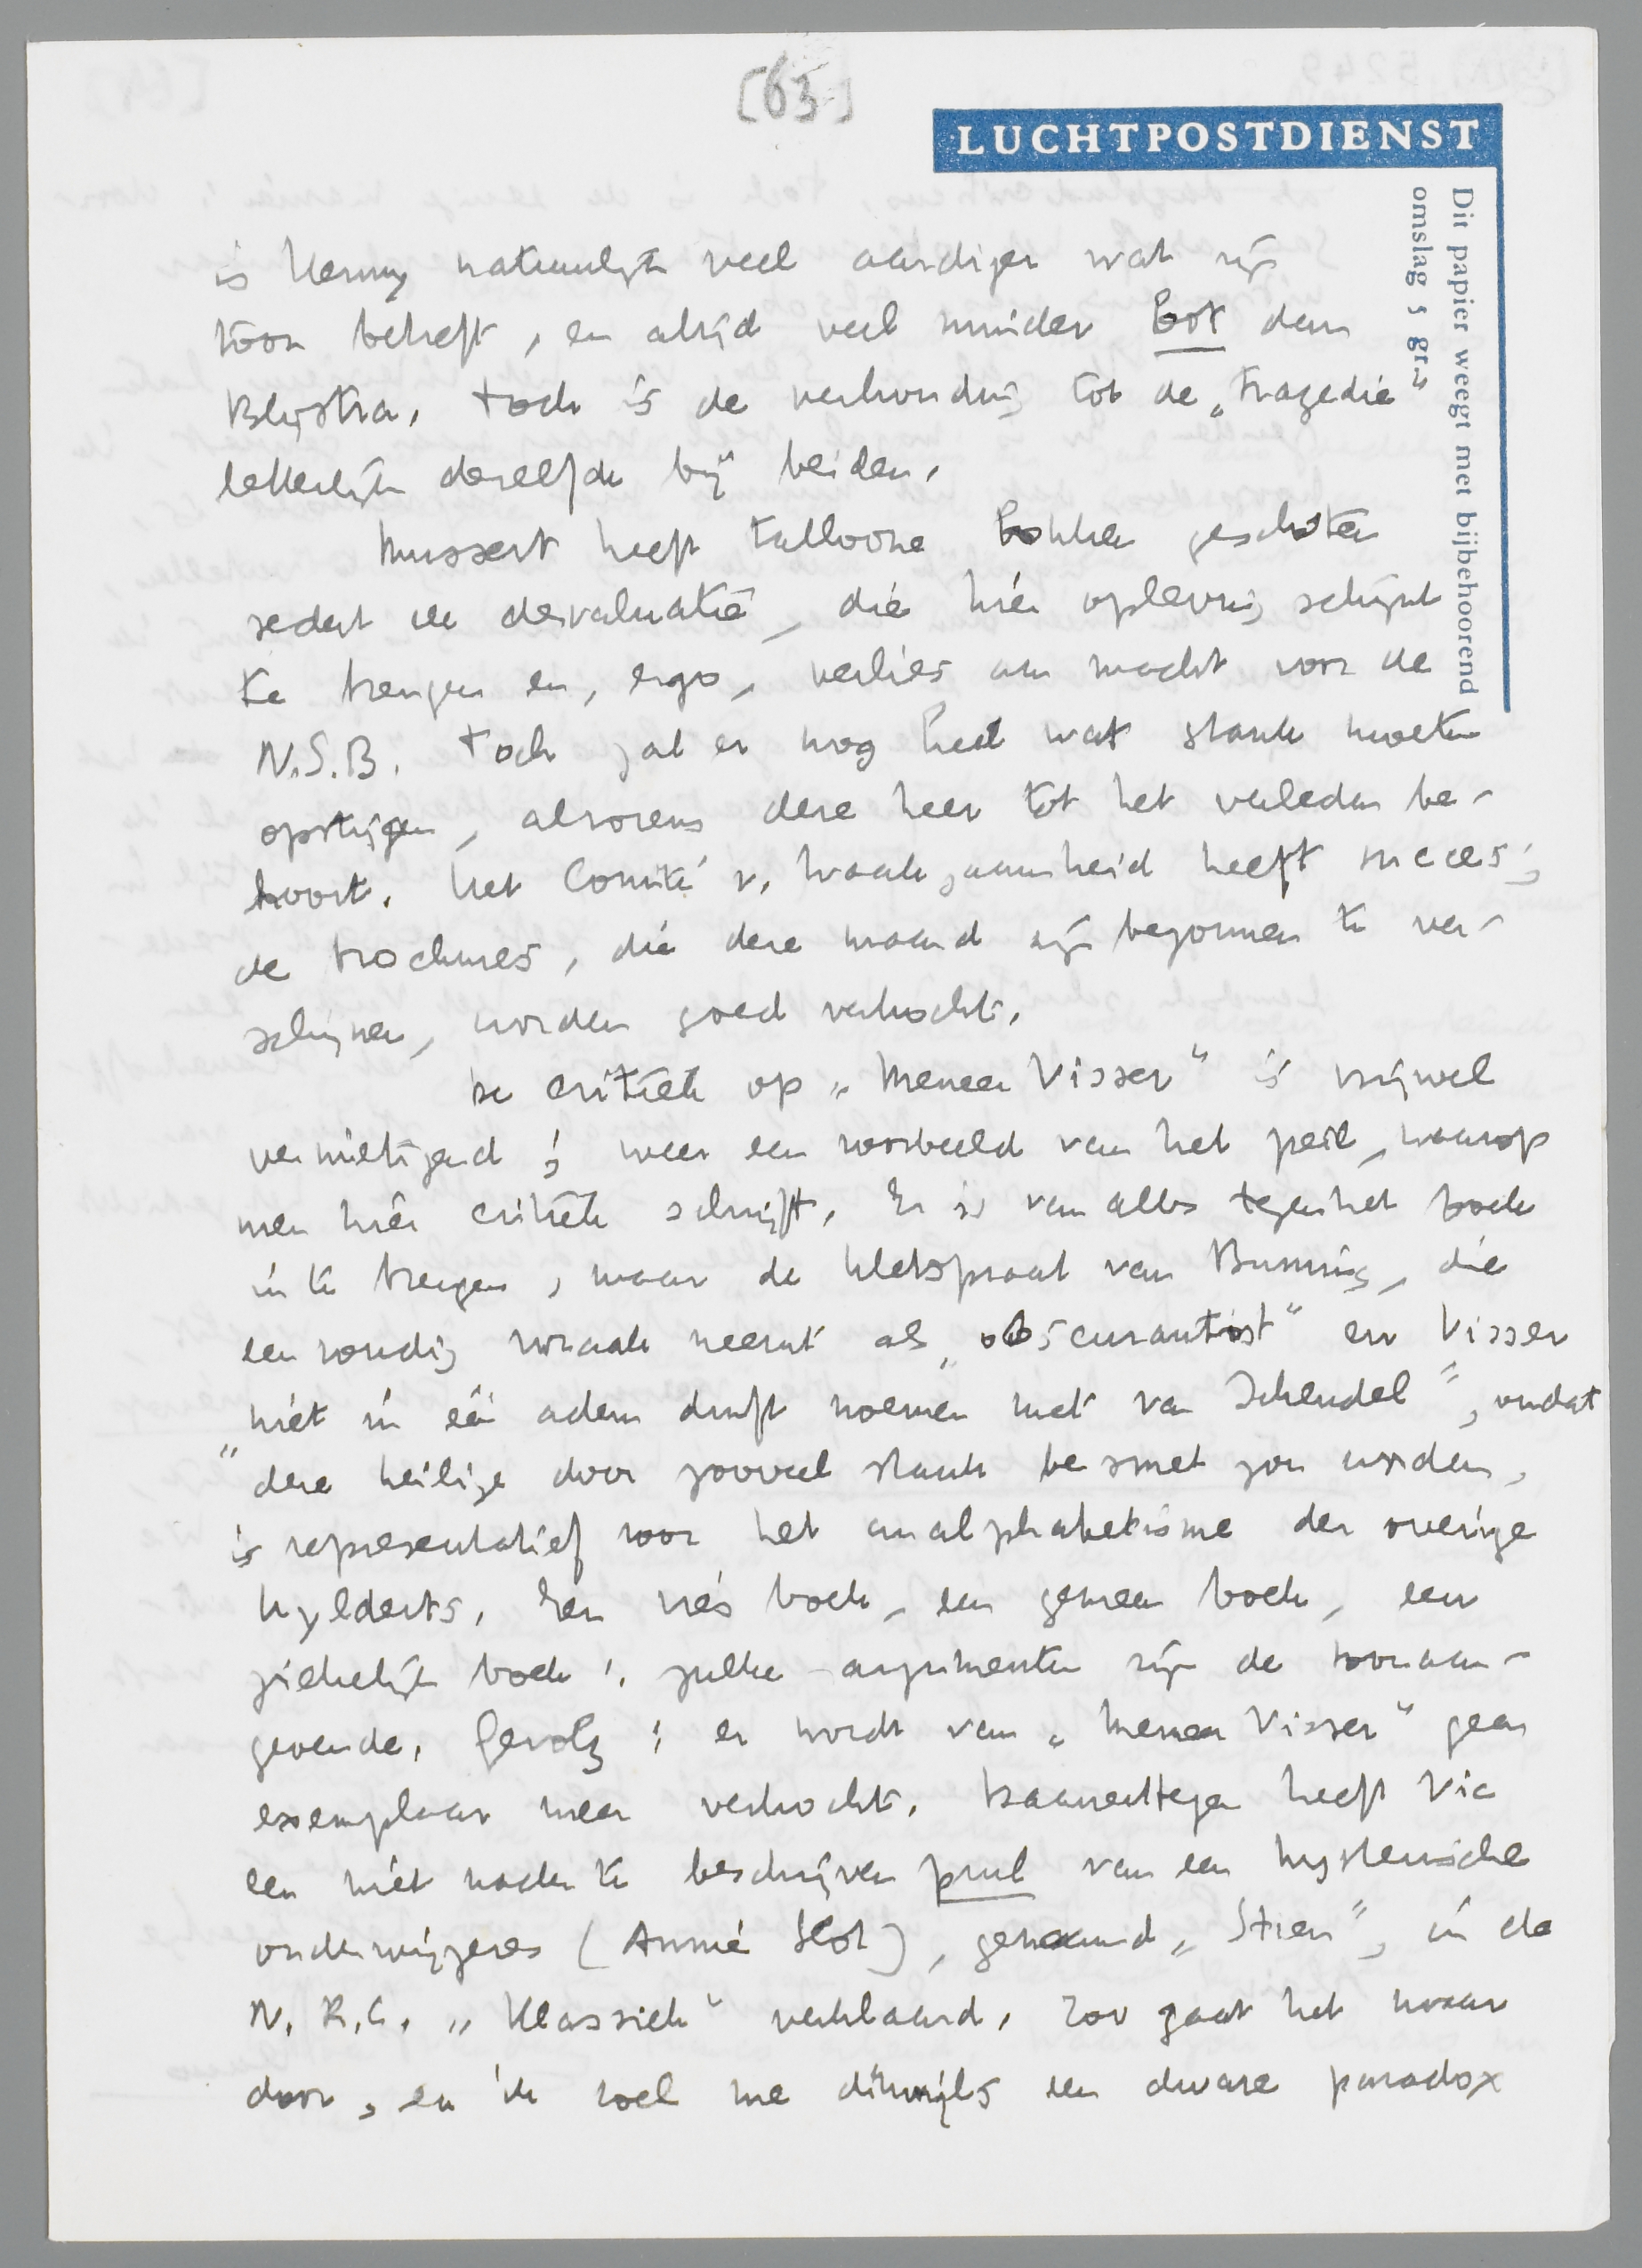 [63]
LUCHTPOSTDIENST
Dit papier weegt met bijbehoorend
omslag 5 gr.
is Henny natuurlijk veel aardiger wat zijn
toon betreft, en altijd veel minder bot dan
Blijstra. Toch is de verhouding tot de „tragedie"
letterlijk dezelfde bij beiden.
Mussert heeft talloore bokken geschoten
sedert de devaluatie, die hier opleving schijnt
te brengen en, ergo, verlies aan macht voor de
N.S.B. Toch zal er nog heel wat stank moeten
opstijgen, alvorens deze heer tot het verleden be-
hoort. Het Comité v. Waakzaamheid heeft succes;
de brochures, die deze maand zijn begonnen te ver-
schijnen, worden goed verkocht.
De critiek op „Meneer Visser" is vrijwel
vernietigend; weer een voorbeeld van het peil, waarop
men hier critiek schrijft. Er is van alles tegen het boek
in te brengen, maar de kletspraat van Buning, die
eenvoudig wraak neemt als „obscurantist" en Visser
niet in één adem durft noemen met van Schendel", omdat
"deze heilige door zooveel stank besmet zou worden,
is representatief voor het analphabetisme der overige
hylderts. Een vies boek, een gemeen boek, een
ziekelijk boek!, zulke argumenten zijn de toonaan-
gevende. Gevolg: er wordt van „Meneer Visser" geen
exemplaar meer verkocht. Daarentegen heeft Vic
een niet nader te beschrijven prul van een hysterische
onderwijzeres (Annie Slot), genaamd „Stien", in de
N.R.C. „klassiek" verklaard. Zoo gaat het maar
door, en ik voel me dikwijls een dwaze paradox